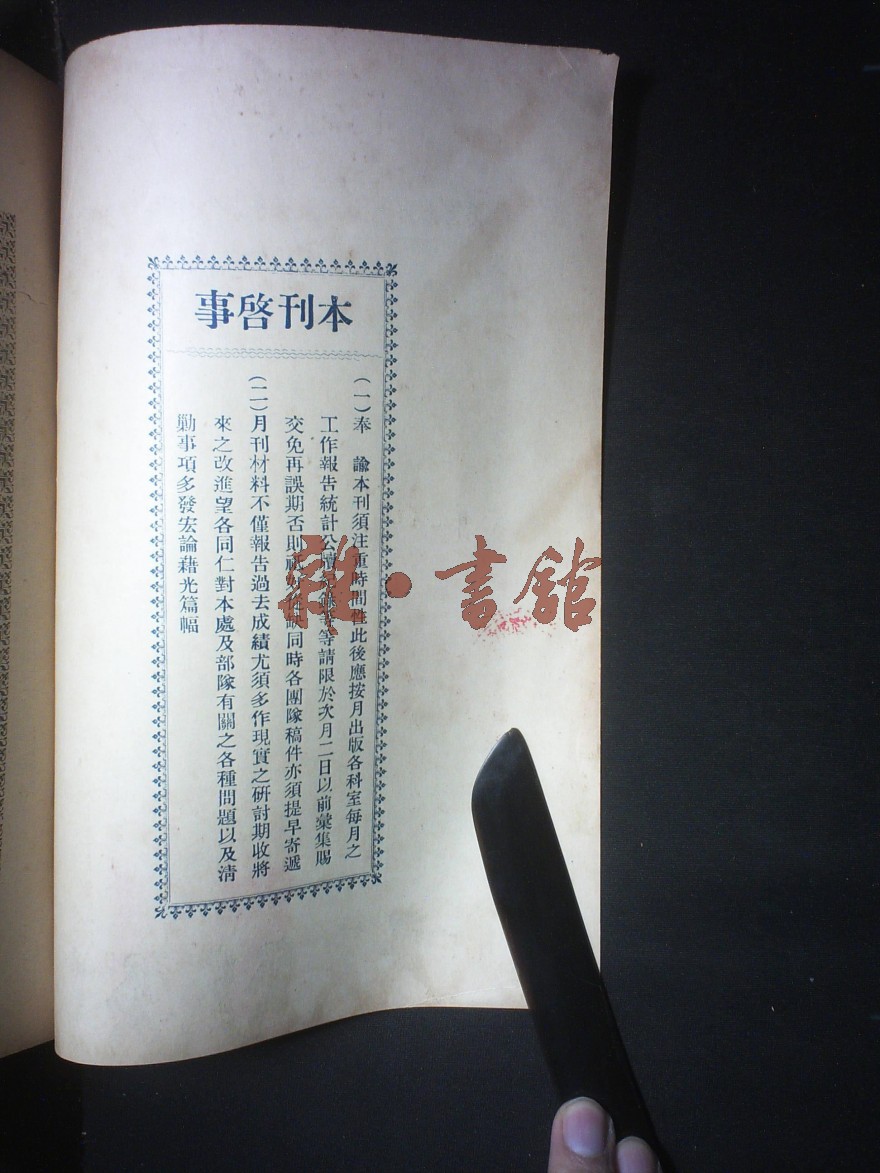 本刊啓事
(一)奉　諭本刊須注重時間性此後應按月出版各科室每月之
工作報告統計公牘等請限於次月二日以前彙集賜
交免再誤期否則同時各團隊稿件亦須提早寄遞
(二)月刊材料不僅報告過去成績尤須多作現實之研討期收將
來之改進望各同仁對本處及部隊有關之各種問題以及清
勦事項多發宏論藉光篇幅
雜·書館